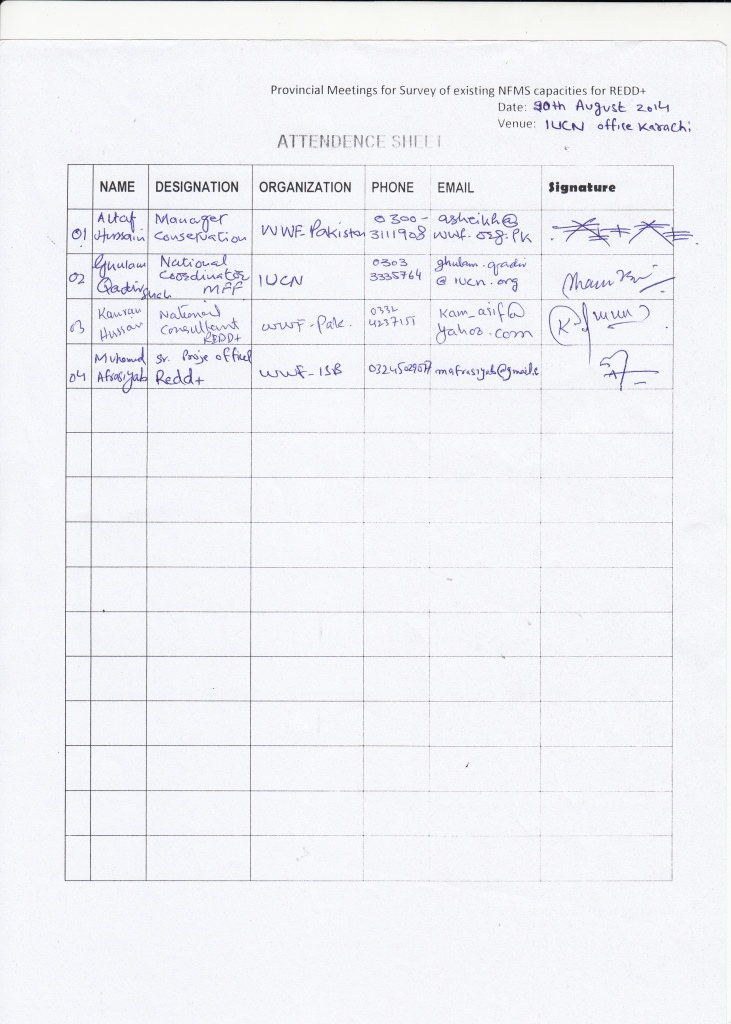 Provincial Meetings for Survey of existing NFMS capacities for REDD+
Date: 30th August 2014
Venue: IUCN office Karachi
ATTENDENCE SHEET
NAME DESIGNATION ORGANIZATION PHONE EMAIL Signature
01 Altaf Hussain Manager Conservation WWF-Pakistan 0300-3111908 asheikh@wwf.org.pk
02 Ghulam Qadir National Coordinator MFF IUCN 0303 3335764 ghulam.qadir@iucn.org
03 Kamran Hussain National Consultant REDD+ WWF-Pak. 0332 4237151 kam_asif@yahoo.com
04 Afrasiyab Sr. Proje officer Redd+ WWF-ISB